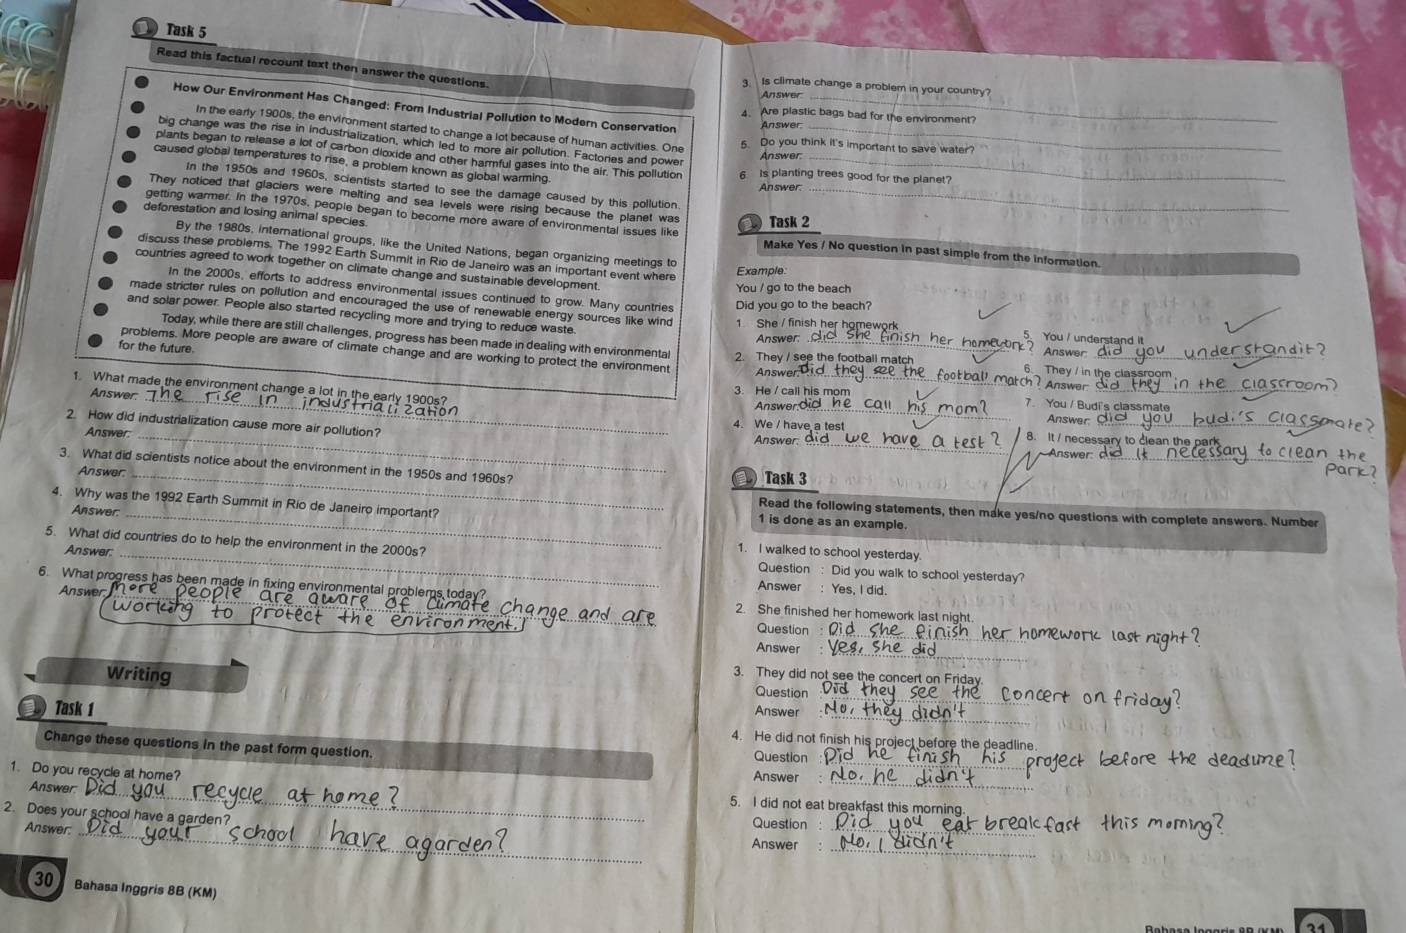 Task 5
Read this factual recount text then answer the questions.
How Our Environment Has Changed: From Industrial Pollution to Modern Conservation
In the early 1900s, the environment started to change a lot because of human activities. One
big change was the rise in industrialization, which led to more air pollution. Factories and power
plants began to release a lot of carbon dioxide and other harmful gases into the air. This pollution
caused global temperatures to rise, a problem known as global warming.
In the 1950s and 1960s, scientists started to see the damage caused by this pollution.
They noticed that glaciers were melting and sea levels were rising because the planet was
getting warmer. In the 1970s, people began to become more aware of environmental issues like
deforestation and losing animal species.
By the 1980s, international groups, like the United Nations, began organizing meetings to
discuss these problems. The 1992 Earth Summit in Rio de Janeiro was an important event where
countries agreed to work together on climate change and sustainable development.
In the 2000s, efforts to address environmental issues continued to grow. Many countries
made stricter rules on pollution and encouraged the use of renewable energy sources like wind
and solar power. People also started recycling more and trying to reduce waste.
Today, while there are still challenges, progress has been made in dealing with environmental
problems. More people are aware of climate change and are working to protect the environment
for the future.
1. What made the environment change a lot in the early 1900s?
Answer: The rise in industrialization
2. How did industrialization cause more air pollution?
Answer:
3. What did scientists notice about the environment in the 1950s and 1960s?
Answer:
4. Why was the 1992 Earth Summit in Rio de Janeiro important?
Answer:
5. What did countries do to help the environment in the 2000s?
Answer:
6. What progress has been made in fixing environmental problems today?
Answer: more people are aware of climate change and are
working to protect the environment.
Writing
Task 1
Change these questions in the past form question.
1. Do you recycle at home?
Answer: Did you recycle at home?
2. Does your school have a garden?
Answer: Did your school have a garden?
30 Bahasa Inggris 8B (KM)
3. Is climate change a problem in your country?
Answer:
4. Are plastic bags bad for the environment?
Answer:
5. Do you think it's important to save water?
Answer:
6 Is planting trees good for the planet?
Answer:
Task 2
Make Yes / No question in past simple from the information.
Example:
You / go to the beach
Did you go to the beach?
1. She / finish her homework
Answer: did she finish her homework?
2. They / see the football match
Answer: Did they see the football match?
3. He / call his mom
Answer: did he call his mom?
4. We / have a test
Answer: did we have a test?
5. You / understand it
Answer: did you understandit?
6. They / in the classroom
Answer: did they in the classroom?
7. You / Budi's classmate
Answer: did you budi's classmate?
8. It / necessary to clean the park
Answer: did It necessary to clean the
park?
Task 3
Read the following statements, then make yes/no questions with complete answers. Number
1 is done as an example.
1. I walked to school yesterday.
Question : Did you walk to school yesterday?
Answer : Yes, I did.
2. She finished her homework last night.
Question : Did she finish her homework last night?
Answer : Yes, she did
3. They did not see the concert on Friday.
Question : Did they see the concert on friday?
Answer : No, they didn't
4. He did not finish his project before the deadline.
Question : Did he finish his project before the deadline?
Answer : No, he didn't
5. I did not eat breakfast this morning.
Question : Did you eat breakfast this morning?
Answer : No, I didn't
Bahasa Inggris 8B (KM) 31